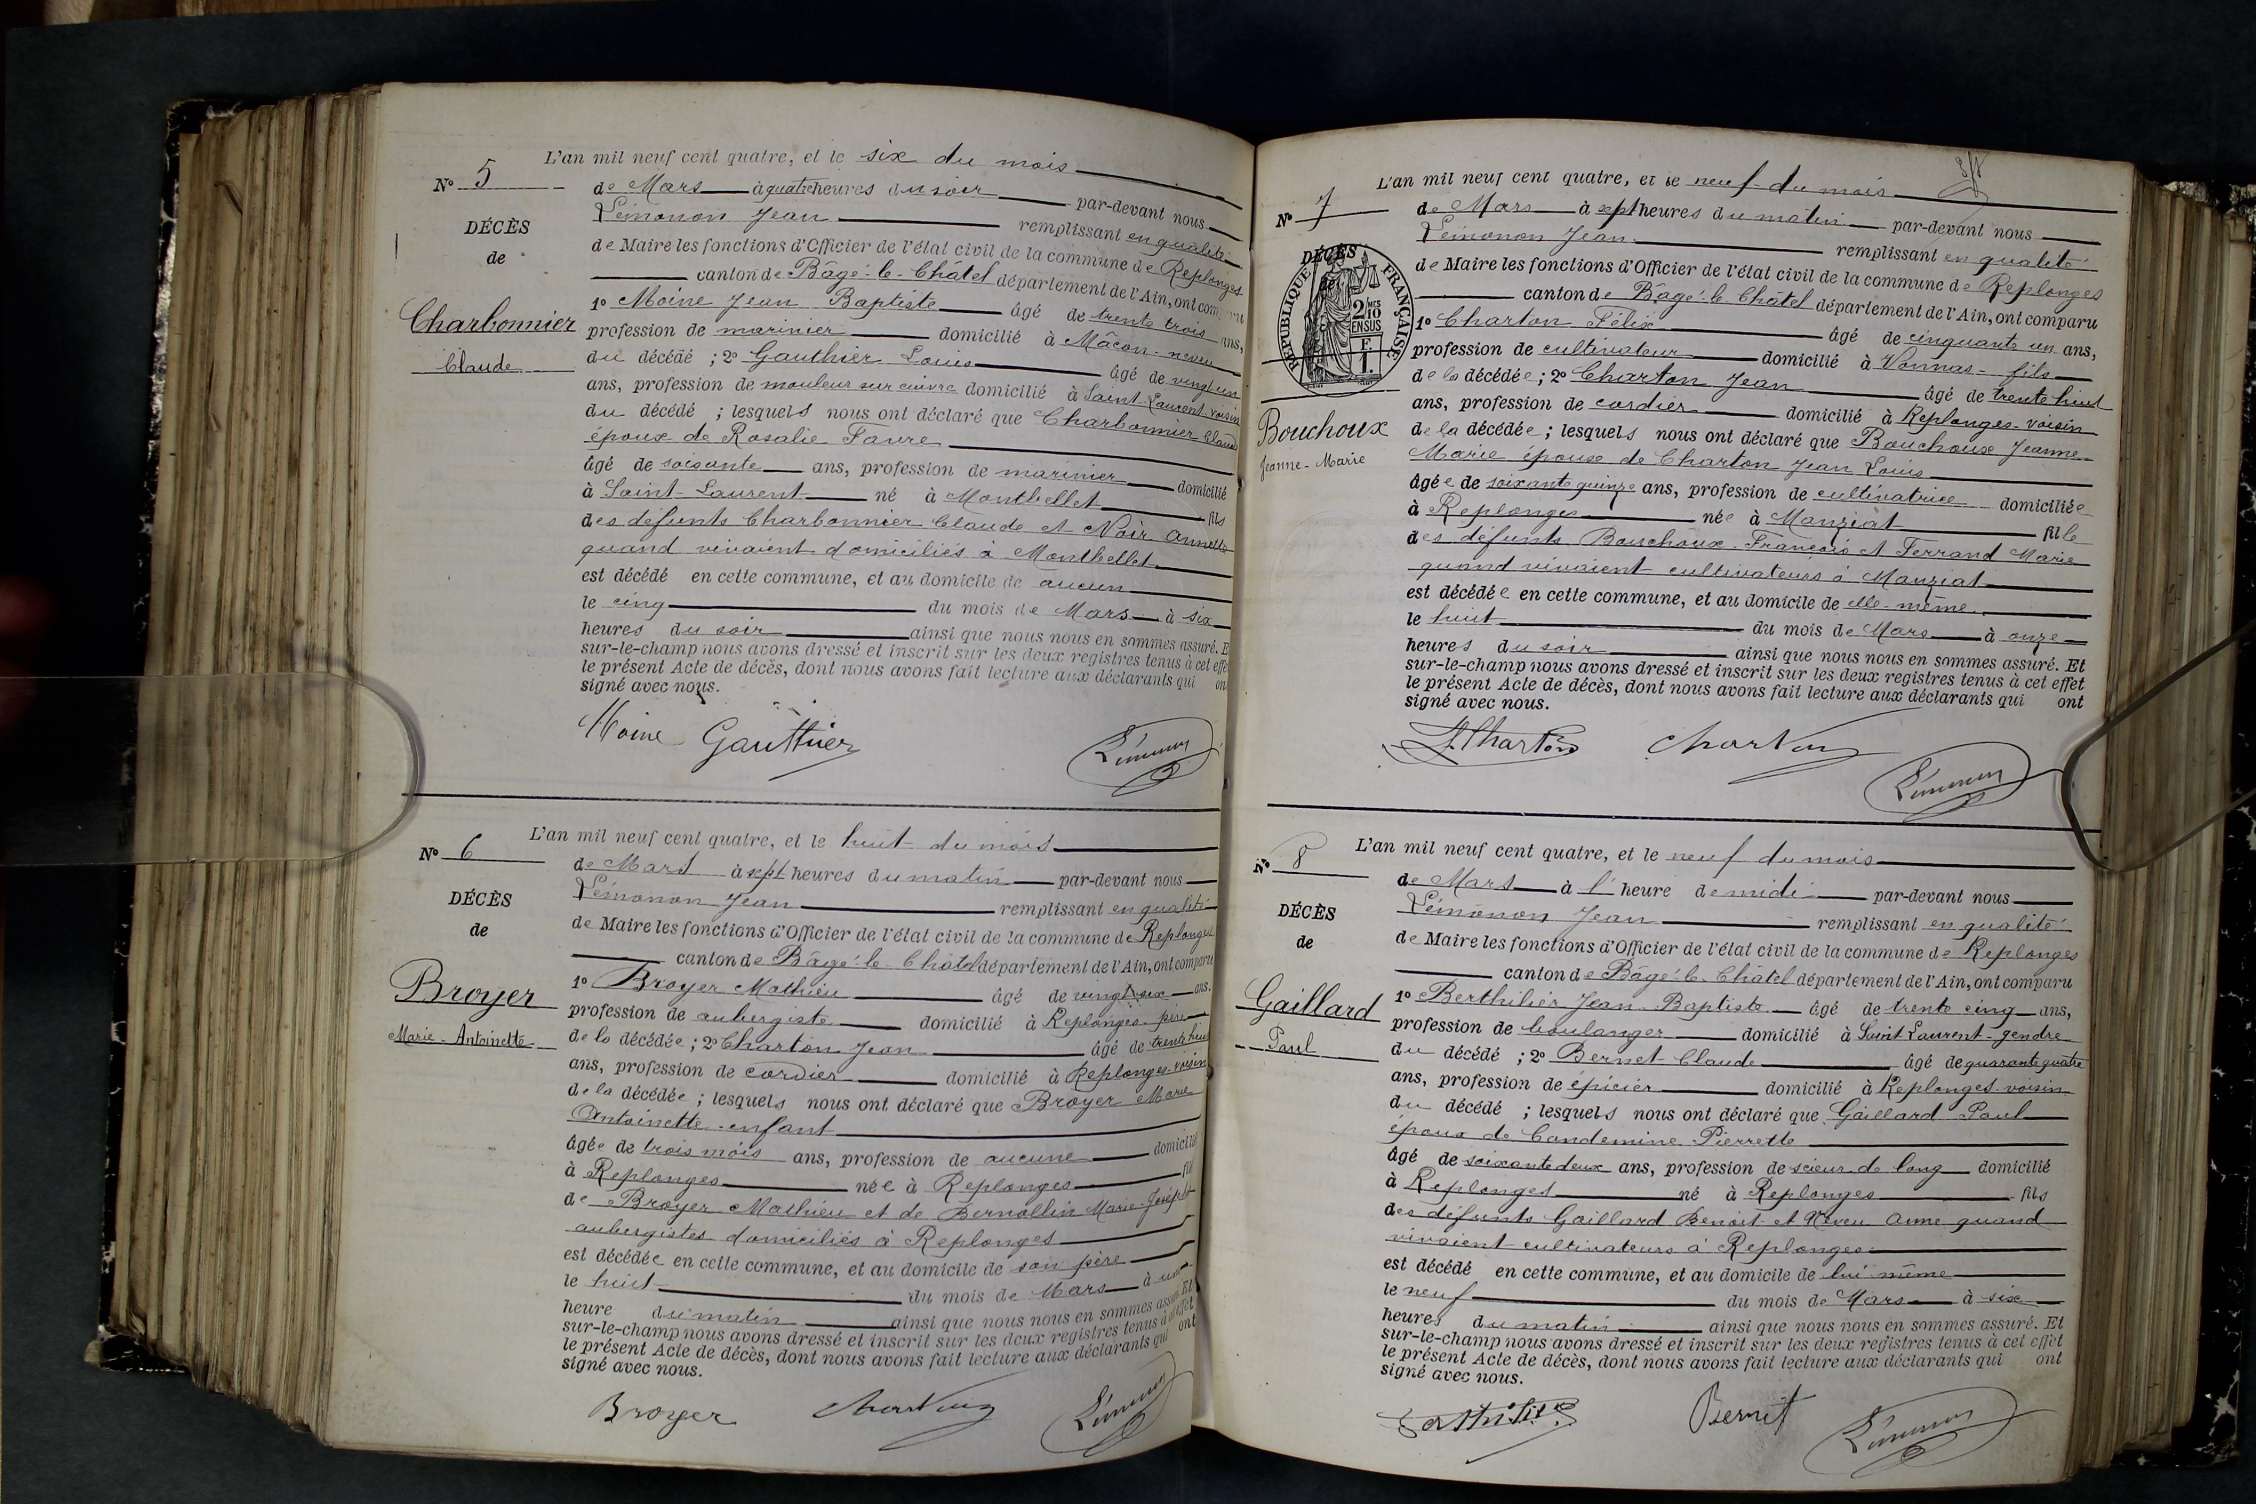 L'an mil neuf cent quatre, et le six du mois
No 5
de Mars à quatre heures du soir par-devant nous
Lémonon Jean remplissant en qualité
DÉCÈS
de
de Maire les fonctions d'Officier de l'état civil de la commune de Replonges
canton de Bâgé-le-Châtel département de l'Ain, ont comparu
Charbonnier
Claude
1o Moine Jean Baptiste âgé de trente trois ans,
profession de marinier domicilié à Mâcon-neveu
du décédé ; 2o Gauthier Louis âgé de vingt un
ans, profession de mouleur sur cuivre domicilié à Saint-Laurent voisin
du décédé ; lesquels nous ont déclaré que Charbonnier Claude
époux de Rosalie Favre
âgé de soixante ans, profession de marinier domicilié
à Saint-Laurent né à Montbellet fils
des défunts Charbonnier Claude et Noir Annette
quand vivaient domiciliés à Montbellet
est décédé en cette commune, et au domicile de aucun
le cinq du mois de Mars à six
heures du soir ainsi que nous nous en sommes assuré. E
sur-le-champ nous avons dressé et inscrit sur les deux registres tenus à cet effe
le présent Acte de décès, dont nous avons fait lecture aux déclarants qui on
signé avec nous.
Moine Gauthier Lémonon
L'an mil neuf cent quatre, et le huit du mois
No 6
de Mars à sept heures du matin par-devant nous
Lémonon Jean remplissant en qualité
DÉCÈS
de
de Maire les fonctions d'Officier de l'état civil de la commune de Replonges
canton de Bâgé-le-Châtel département de l'Ain, ont comparu
Broyer
Marie-Antoinette
1o Broyer Mathieu âgé de vingt six ans.
profession de aubergiste domicilié à Replonges-père
de la décédée ; 2o Charton Jean âgé de trente huit
ans, profession de cordier domicilié à Replonges-voisin
de la décédée ; lesquels nous ont déclaré que Broyer Marie
Antoinette-enfant
âgée de trois mois ans, profession de aucune domicilié
à Replonges née à Replonges fil
de Broyer Mathieu et de Bernollin Marie-Josèphe
aubergistes domiciliés à Replonges
est décédée en cette commune, et au domicile de son père
le huit du mois de Mars à une
heure du matin ainsi que nous nous en sommes assuré. Et
sur-le-champ nous avons dressé et inscrit sur les deux registres tenus à cet effet
le présent Acte de décès, dont nous avons fait lecture aux déclarants qui ont
signé avec nous.
Broyer Charton Lémonon
L'an mil neuf cent quatre, et le neuf du mois
No 7
de Mars à sept heures du matin par-devant nous
Lémonon Jean remplissant en qualité
DÉCÈS
de
RÉPUBLIQUE FRANÇAISE
2/10 EN SUS
F. 1.
de Maire les fonctions d'Officier de l'état civil de la commune de Replonges
canton de Bâgé-le-Châtel département de l'Ain, ont comparu
Bouchoux
Jeanne-Marie
1o Charton Félix âgé de cinquante un ans,
profession de cultivateur domicilié à Vonnas-fils
de la décédée ; 2o Charton Jean âgé de trente huit
ans, profession de cordier domicilié à Replonges-voisin
de la décédée ; lesquels nous ont déclaré que Bouchoux Jeanne
Marie épouse de Charton Jean Louis
âgée de soixante quinze ans, profession de cultivatrice domiciliée
à Replonges née à Manziat fille
des défunts Bouchoux François et Ferrand Marie
quand vivaient cultivateurs à Manziat
est décédée en cette commune, et au domicile de elle-même
le huit du mois de Mars à onze
heures du soir ainsi que nous nous en sommes assuré. Et
sur-le-champ nous avons dressé et inscrit sur les deux registres tenus à cet effet
le présent Acte de décès, dont nous avons fait lecture aux déclarants qui ont
signé avec nous.
F. Charton Charton Lémonon
L'an mil neuf cent quatre, et le neuf du mois
No 8
de Mars à l'heure de midi par-devant nous
Lémonon Jean remplissant en qualité
DÉCÈS
de
de Maire les fonctions d'Officier de l'état civil de la commune de Replonges
canton de Bâgé-le-Châtel département de l'Ain, ont comparu
Gaillard
Paul
1o Berthilier Jean-Baptiste âgé de trente cinq ans,
profession de boulanger domicilié à Saint Laurent-gendre
du décédé ; 2o Bernet Claude âgé de quarante quatre
ans, profession de épicier domicilié à Replonges-voisin
du décédé ; lesquels nous ont déclaré que Gaillard Paul
époux de Condemine Pierrette
âgé de soixante deux ans, profession de scieur de long domicilié
à Replonges né à Replonges fils
des défunts Gaillard Benoit et Neveu Anne quand
vivaient cultivateurs à Replonges
est décédé en cette commune, et au domicile de lui même
le neuf du mois de Mars à six
heures du matin ainsi que nous nous en sommes assuré. Et
sur-le-champ nous avons dressé et inscrit sur les deux registres tenus à cet effet
le présent Acte de décès, dont nous avons fait lecture aux déclarants qui ont
signé avec nous.
Bernet Lémonon